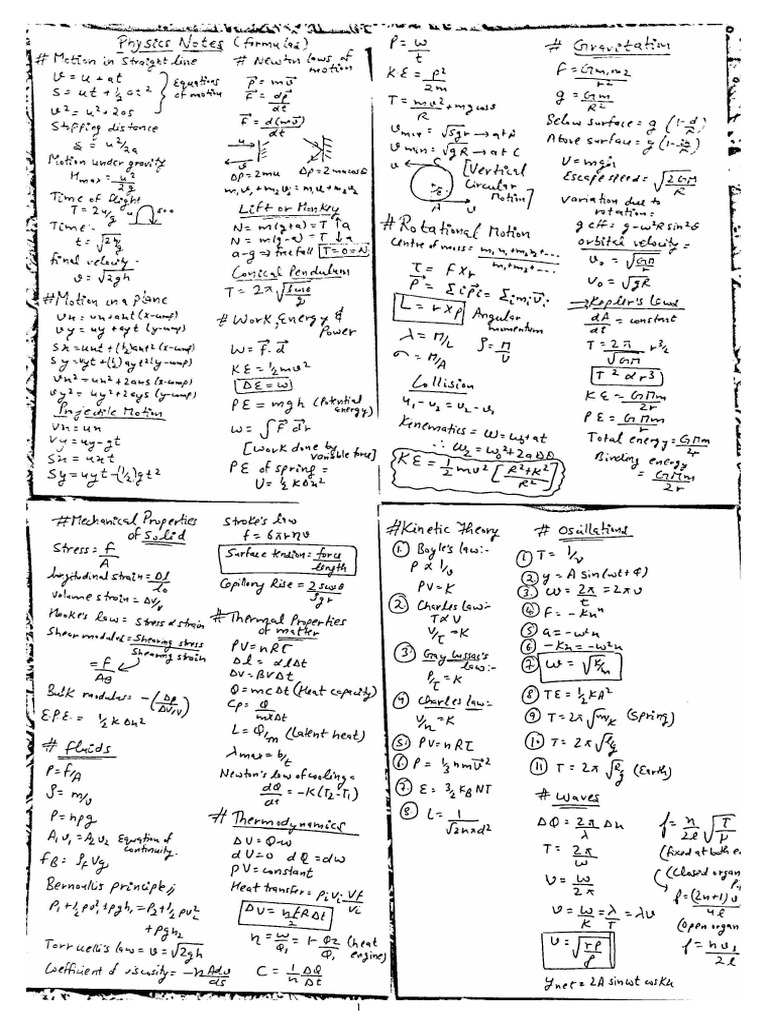 Physics Notes (formulas)
# Motion in straight line
v = u + at
s = ut + ½ at²
v² = u² + 2as
Equations of motion
Stopping distance
s = u²/2a
Motion under gravity
Hmax = u²/2g
Time of flight
T = 2u/g
Time:
Final velocity
v = √2gh
# Motion in a plane
vy = uy + ayt (y-comp)
Projectile Motion
vx = ux
vy = uy - gt
sx = uxt
sy = uyt - (½)gt²
# Newton laws of motion
p⃗ = mv⃗
F⃗ = dp⃗/dt
F⃗ = d(mv⃗)/dt
Δp = 2mu
Δp = 2mu cosθ
Lift or Monkey
N = m(g+a) = T ↑a
N = m(g-a) = T ↓a
a = g ⇒ free fall T = 0 = N
Conical Pendulum
# Work, Energy & Power
W = F⃗.d⃗
KE = ½mv²
ΔE = W
PE = mgh (Potential energy)
W = ∫F⃗ dr⃗
[Work done by variable force]
PE of spring =
U = ½ KΔx²
P = W/t
KE = p²/2m
T = mv²/R + mg cosθ
vmax = √5gr → at A
vmin = √gR → at C
[Vertical Circular Motion]
# Rotational Motion
Centre of mass =
τ = F × r
L = r × p
Angular momentum
λ = M/L
σ = M/A
ρ = M/V
Collision
u₁ - u₂ = v₂ - v₁
Kinematics = ω = ω₀ + αt
KE = ½ mv² [R²+K²/R²]
# Gravitation
F = Gm₁m₂/r²
g = Gm/R²
Below surface = g (1-d/R)
Above surface = g
Escape speed = √2GM/R
variation due to rotation =
orbital velocity =
v₀ = √GM/r
v₀ = √gR
→ Kepler's Laws
dA/dt = constant
T = 2π/√GM r^3/2
T² α r³
KE = GMm/2r
PE = GMm/r
Total energy = GMm/2r
Binding energy
= GMm/2r
# Mechanical Properties of Solid
Stress = F/A
longitudinal strain = Δl/l₀
volume strain = ΔV/V
Hooke's law = stress α strain
Shear modulus = Shearing stress/Shearing strain
= F/Aθ
Bulk modulus = -(Δp/ΔV/V)
E.P.E. = ½ K Δx²
# Fluids
P = F/A
ρ = m/v
P = hρg
A₁v₁ = A₂v₂ Equation of continuity
fB = ρf Vg
Bernoulli's principle
P₁ + ½ρv₁² + ρgh₁ = P₂ + ½ρv₂²
+ ρgh₂
Torricelli's law = v = √2gh
Coefficient of viscosity = -η A dv/ds
Stroke's law
f = 6πrηv
Surface tension = force/length
Capillary Rise = 2s cosθ/ρgr
# Thermal Properties of matter
PV = nRT
Δl = αlΔt
ΔV = βVΔt
Q = mcΔt (Heat capacity)
Cp = Q/m×Δt
L = Q/m (Latent heat)
λmax = b/t
Newton's law of cooling =
dQ/dt = -K(T₂-T₁)
# Thermodynamics
ΔU = Q-W
dU = 0 dQ = dW
PV = constant
Heat transfer =
ΔU = nfRΔt/2
η = W/Q₁ = 1- Q₂/Q₁ (heat engine)
C = 1/n ΔQ/Δt
# Kinetic Theory
1. Boyle's law:-
P α 1/V
PV = K
2. Charles law:-
T α V
V/T = K
3. Gay Lussac's law:-
P/T = K
4. Charles law:-
V/n = K
5. PV = nRT
6. P = ⅓ nmv̄²
7. E = 3/2 KB NT
8. L = 1/√2nπd²
# Oscillations
1. T = 1/ν
2. y = A sin(ωt + φ)
3. ω = 2π/t = 2πν
4. F = -Kx
5. a = -ω²x
6. -Kx = -ω²x
7. ω = √K/m
8. TE = ½ KA²
9. T = 2π√m/K (Spring)
10. T = 2π√l/g
11. T = 2π√R/g (Earth)
# Waves
ΔQ = 2π/λ Δx
T = 2π/ω
ν = ω/2π
v = ω/K = λ/T = λν
v = √γP/ρ
ynet = 2A sin ωt cos Kx
f = n/2l √T/μ
(fixed at both e
(Closed organ
f = (2n+1)v/4l
(Open organ
1